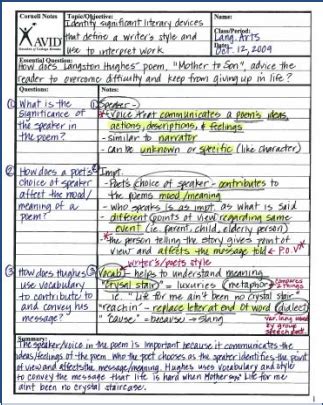 Cornell Notes
Topic/Objective:
Name:
Identify significant literary devices
that define a writer's style and
use to interpret work.
Class/Period:
Lang. Arts
Date:
Oct. 12, 2009
AVID
Essential Question:
How does Langston Hughes' poem, "Mother to Son", advice the
reader to overcome difficulty and keep from giving up in life?
Questions:
Notes:
① What is the
significance of
the speaker in
the poem?
① Speaker -
* Voice that communicates a poem's ideas,
actions, descriptions, & feelings
- Similar to narrator
- can be unknown or specific (like character)
② How does a poet's
choice of speaker
affect the mood/
meaning of a
poem?
② Impt.
- Poet's choice of speaker - contributes to
the poems mood/meaning
- who speaks is as impt. as what is said
- different points of view regarding same
event (ie. parent, child, elderly person)
* the person telling the story gives point of
view and affects the message told ← P.O.V.*
writer's/poets style
③ How does Hughes
use vocabulary
to contribute to
and convey his
message?
③ Vocab - helps to understand meaning
"crystal stair" = luxuries (metaphor) compares
2 things
ie. "Life for me ain't been no crystal stair."
"reachin" - replace letter at end of word (dialect)
"'cause" = because → slang
var. lang. used
by group
Summary:
The speaker/voice in the poem is important because it communicates the
ideas/feelings of the poem. Who the poet chooses as the speaker identifies the point
of view and affects the message/meaning. Hughes uses vocabulary and style
to convey the message that life is hard when Mother says "Life for me
aint been no crystal staircase.